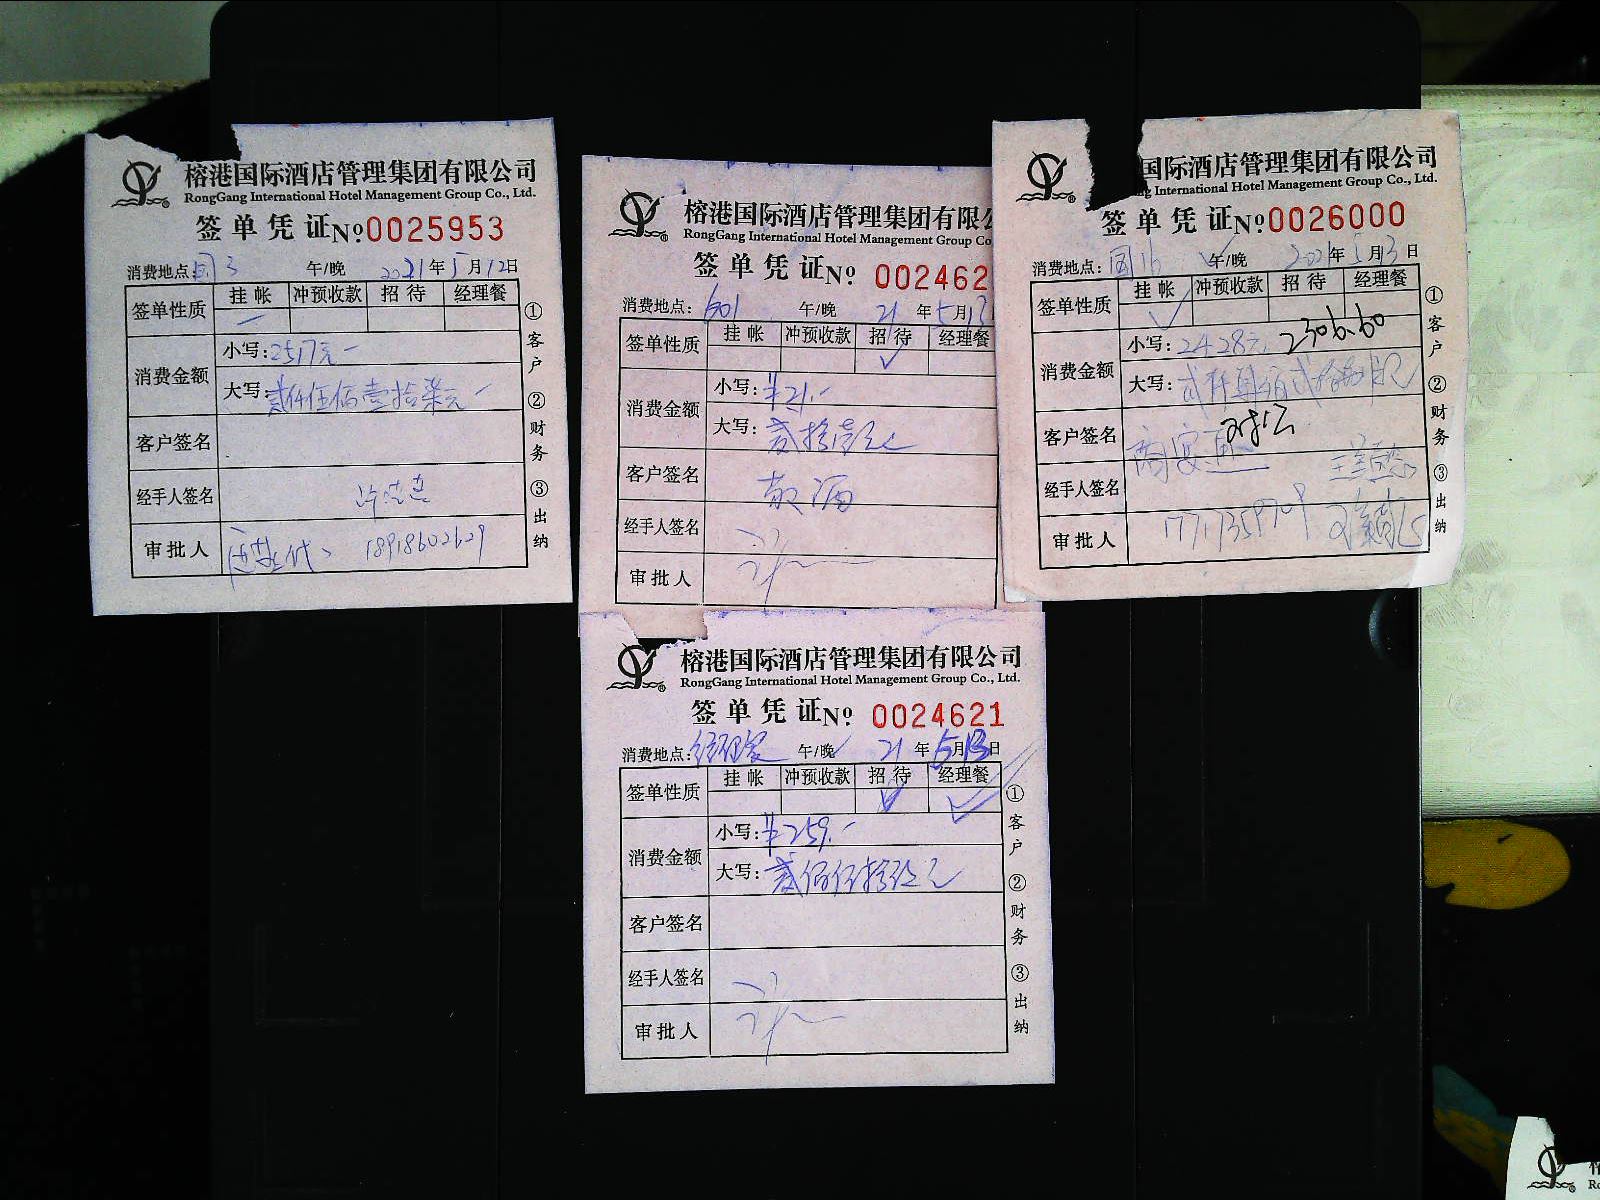 榕港国际酒店管理集团有限公司
RongGang International Hotel Management Group Co., Ltd.
签单凭证 No 0025953
消费地点: 国3 午/晚 2021年5月12日
签单性质 挂帐 冲预收款 招待 经理餐
消费金额
小写: 2517元
大写: 贰仟伍佰壹拾柒元
客户签名
经手人签名
审批人 18918602629
①客户 ②财务 ③出纳
榕港国际酒店管理集团有限公
RongGang International Hotel Management Group Co
签单凭证 No 002462
消费地点: 601 午/晚 21年5月13
签单性质 挂帐 冲预收款 招待 经理餐
消费金额
小写: ¥21.-
大写: 贰拾壹元
客户签名
经手人签名
审批人
国际酒店管理集团有限公司
International Hotel Management Group Co., Ltd.
签单凭证 No 0026000
消费地点: 国16 午/晚 2021年5月13日
签单性质 挂帐 冲预收款 招待 经理餐
消费金额
小写: 2428元 2306.60
大写:
客户签名
经手人签名
审批人
①客户 ②财务 ③出纳
榕港国际酒店管理集团有限公司
RongGang International Hotel Management Group Co., Ltd.
签单凭证 No 0024621
消费地点: 午/晚 21年5月13日
签单性质 挂帐 冲预收款 招待 经理餐
消费金额
小写: ¥259.-
大写: 贰佰伍拾玖元
客户签名
经手人签名
审批人
①客户 ②财务 ③出纳